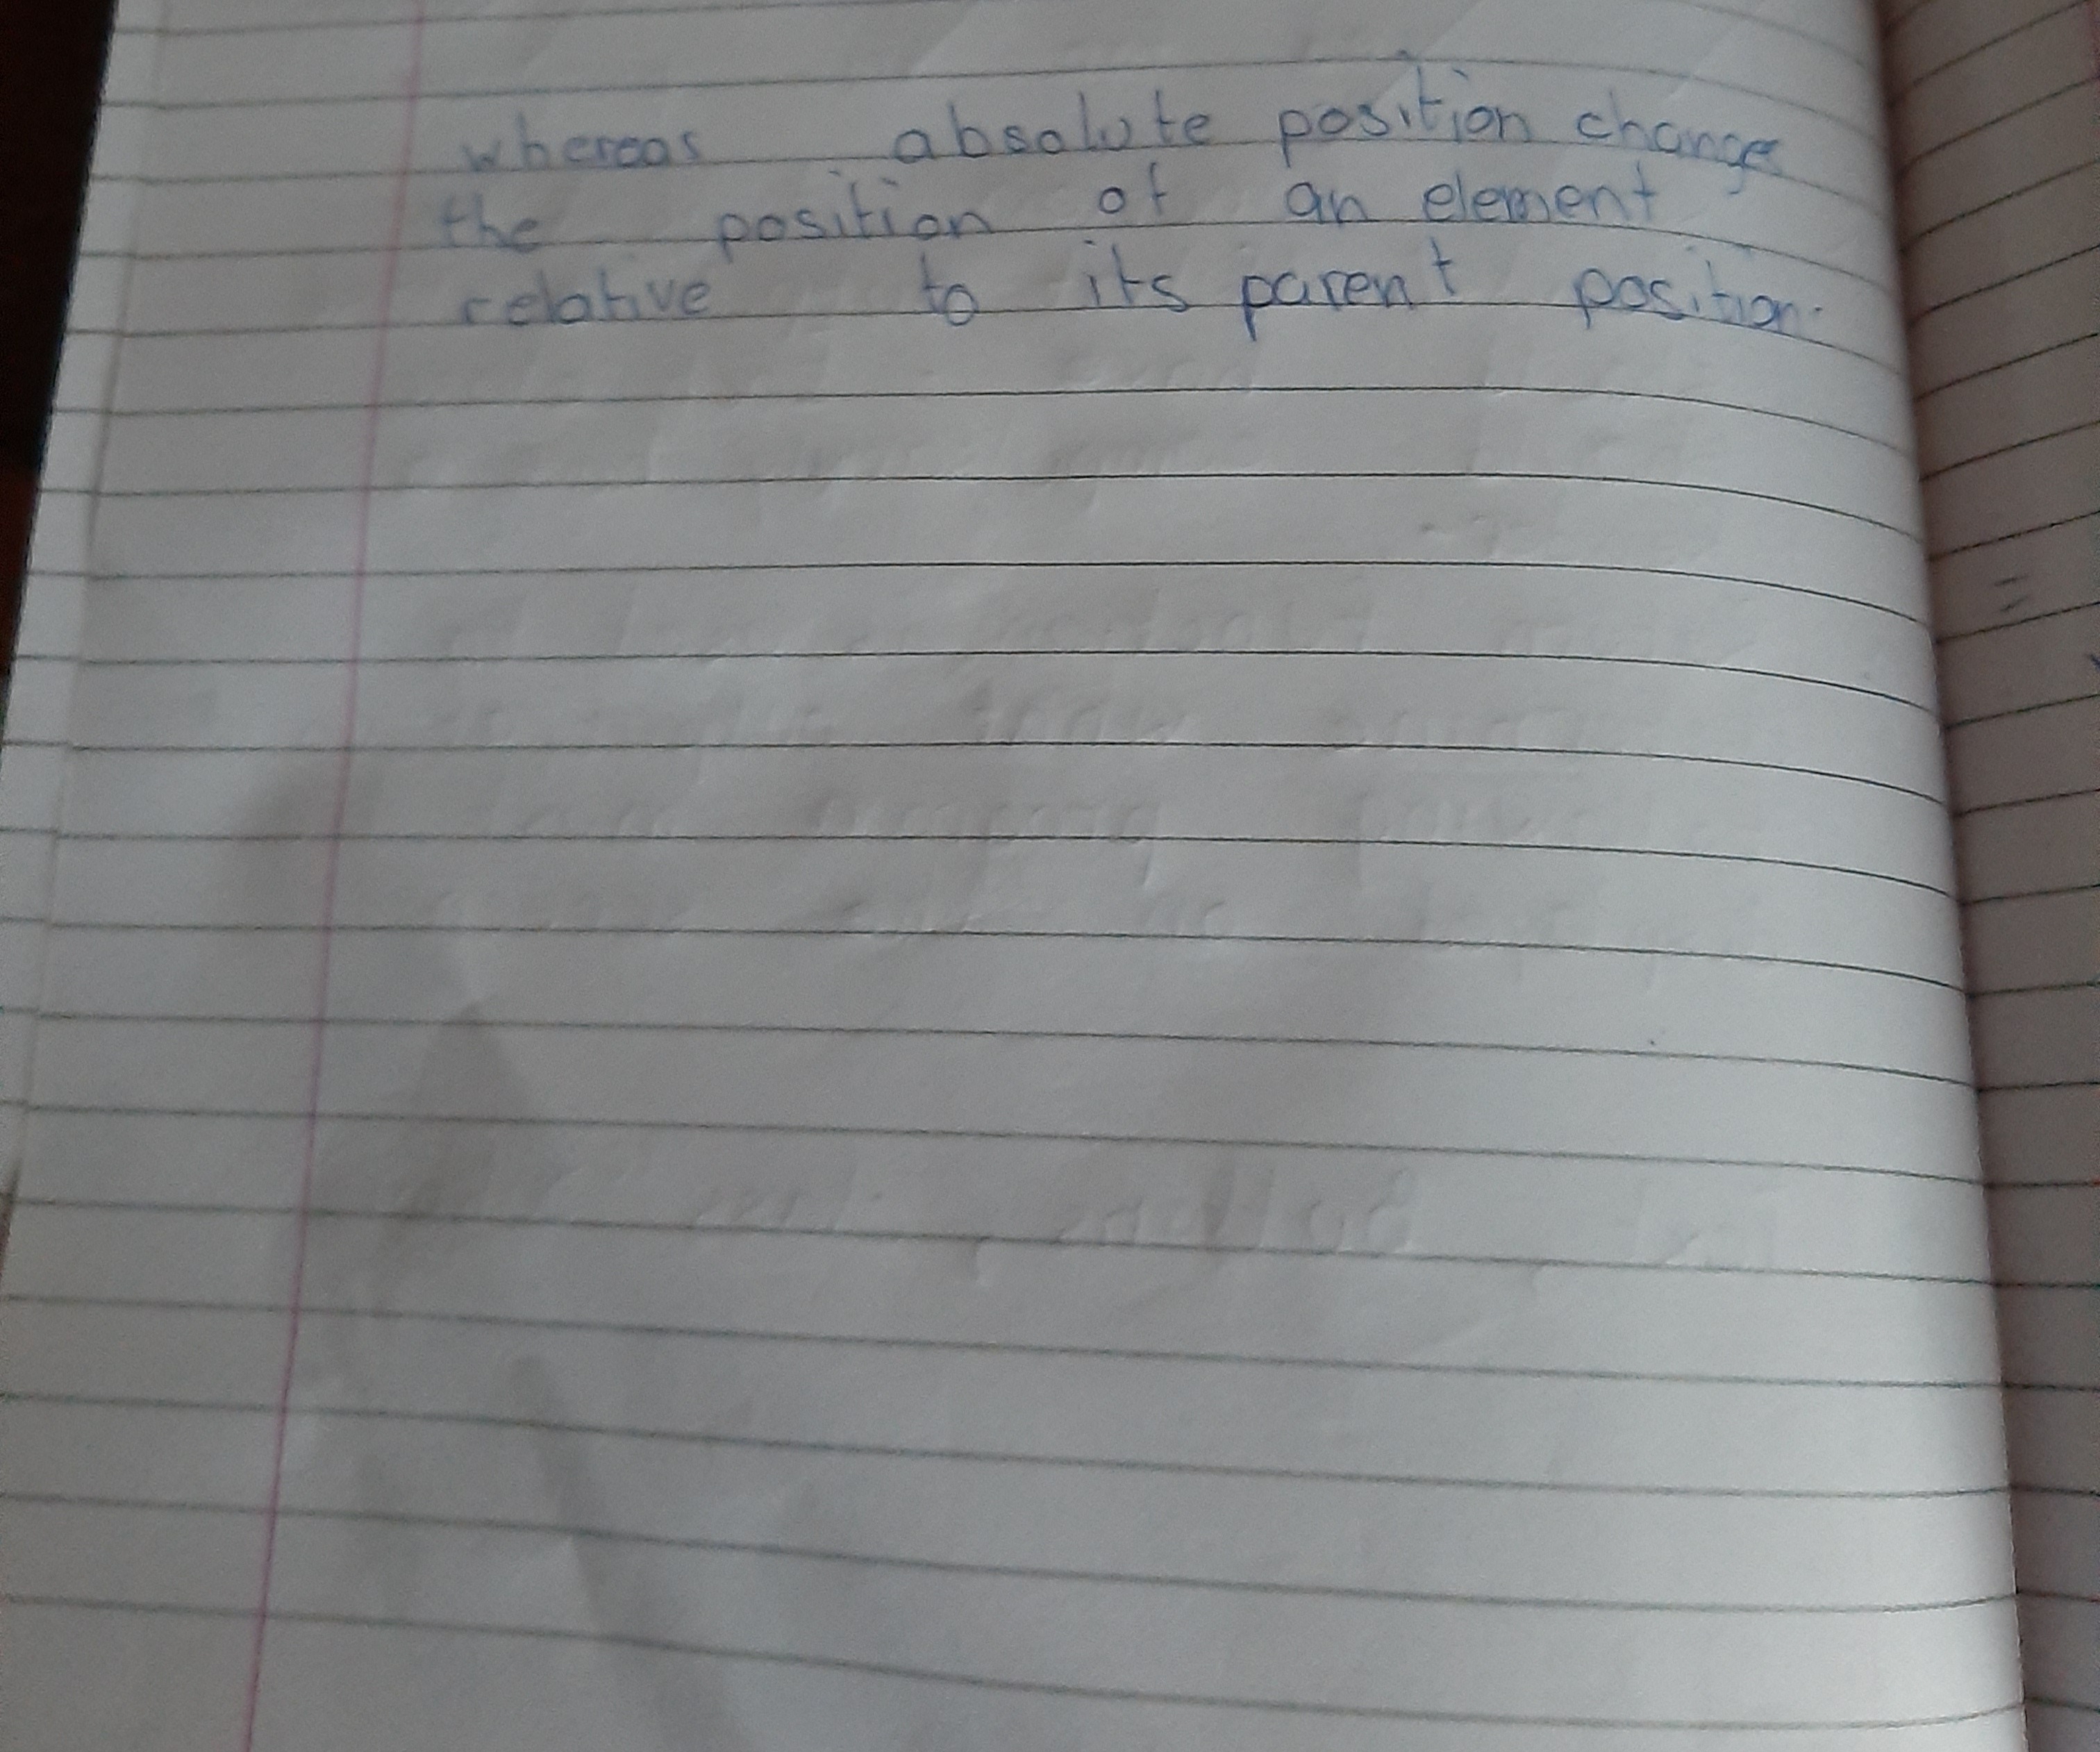 whereas absolute position changes
the position of an element
relative to its parent position.